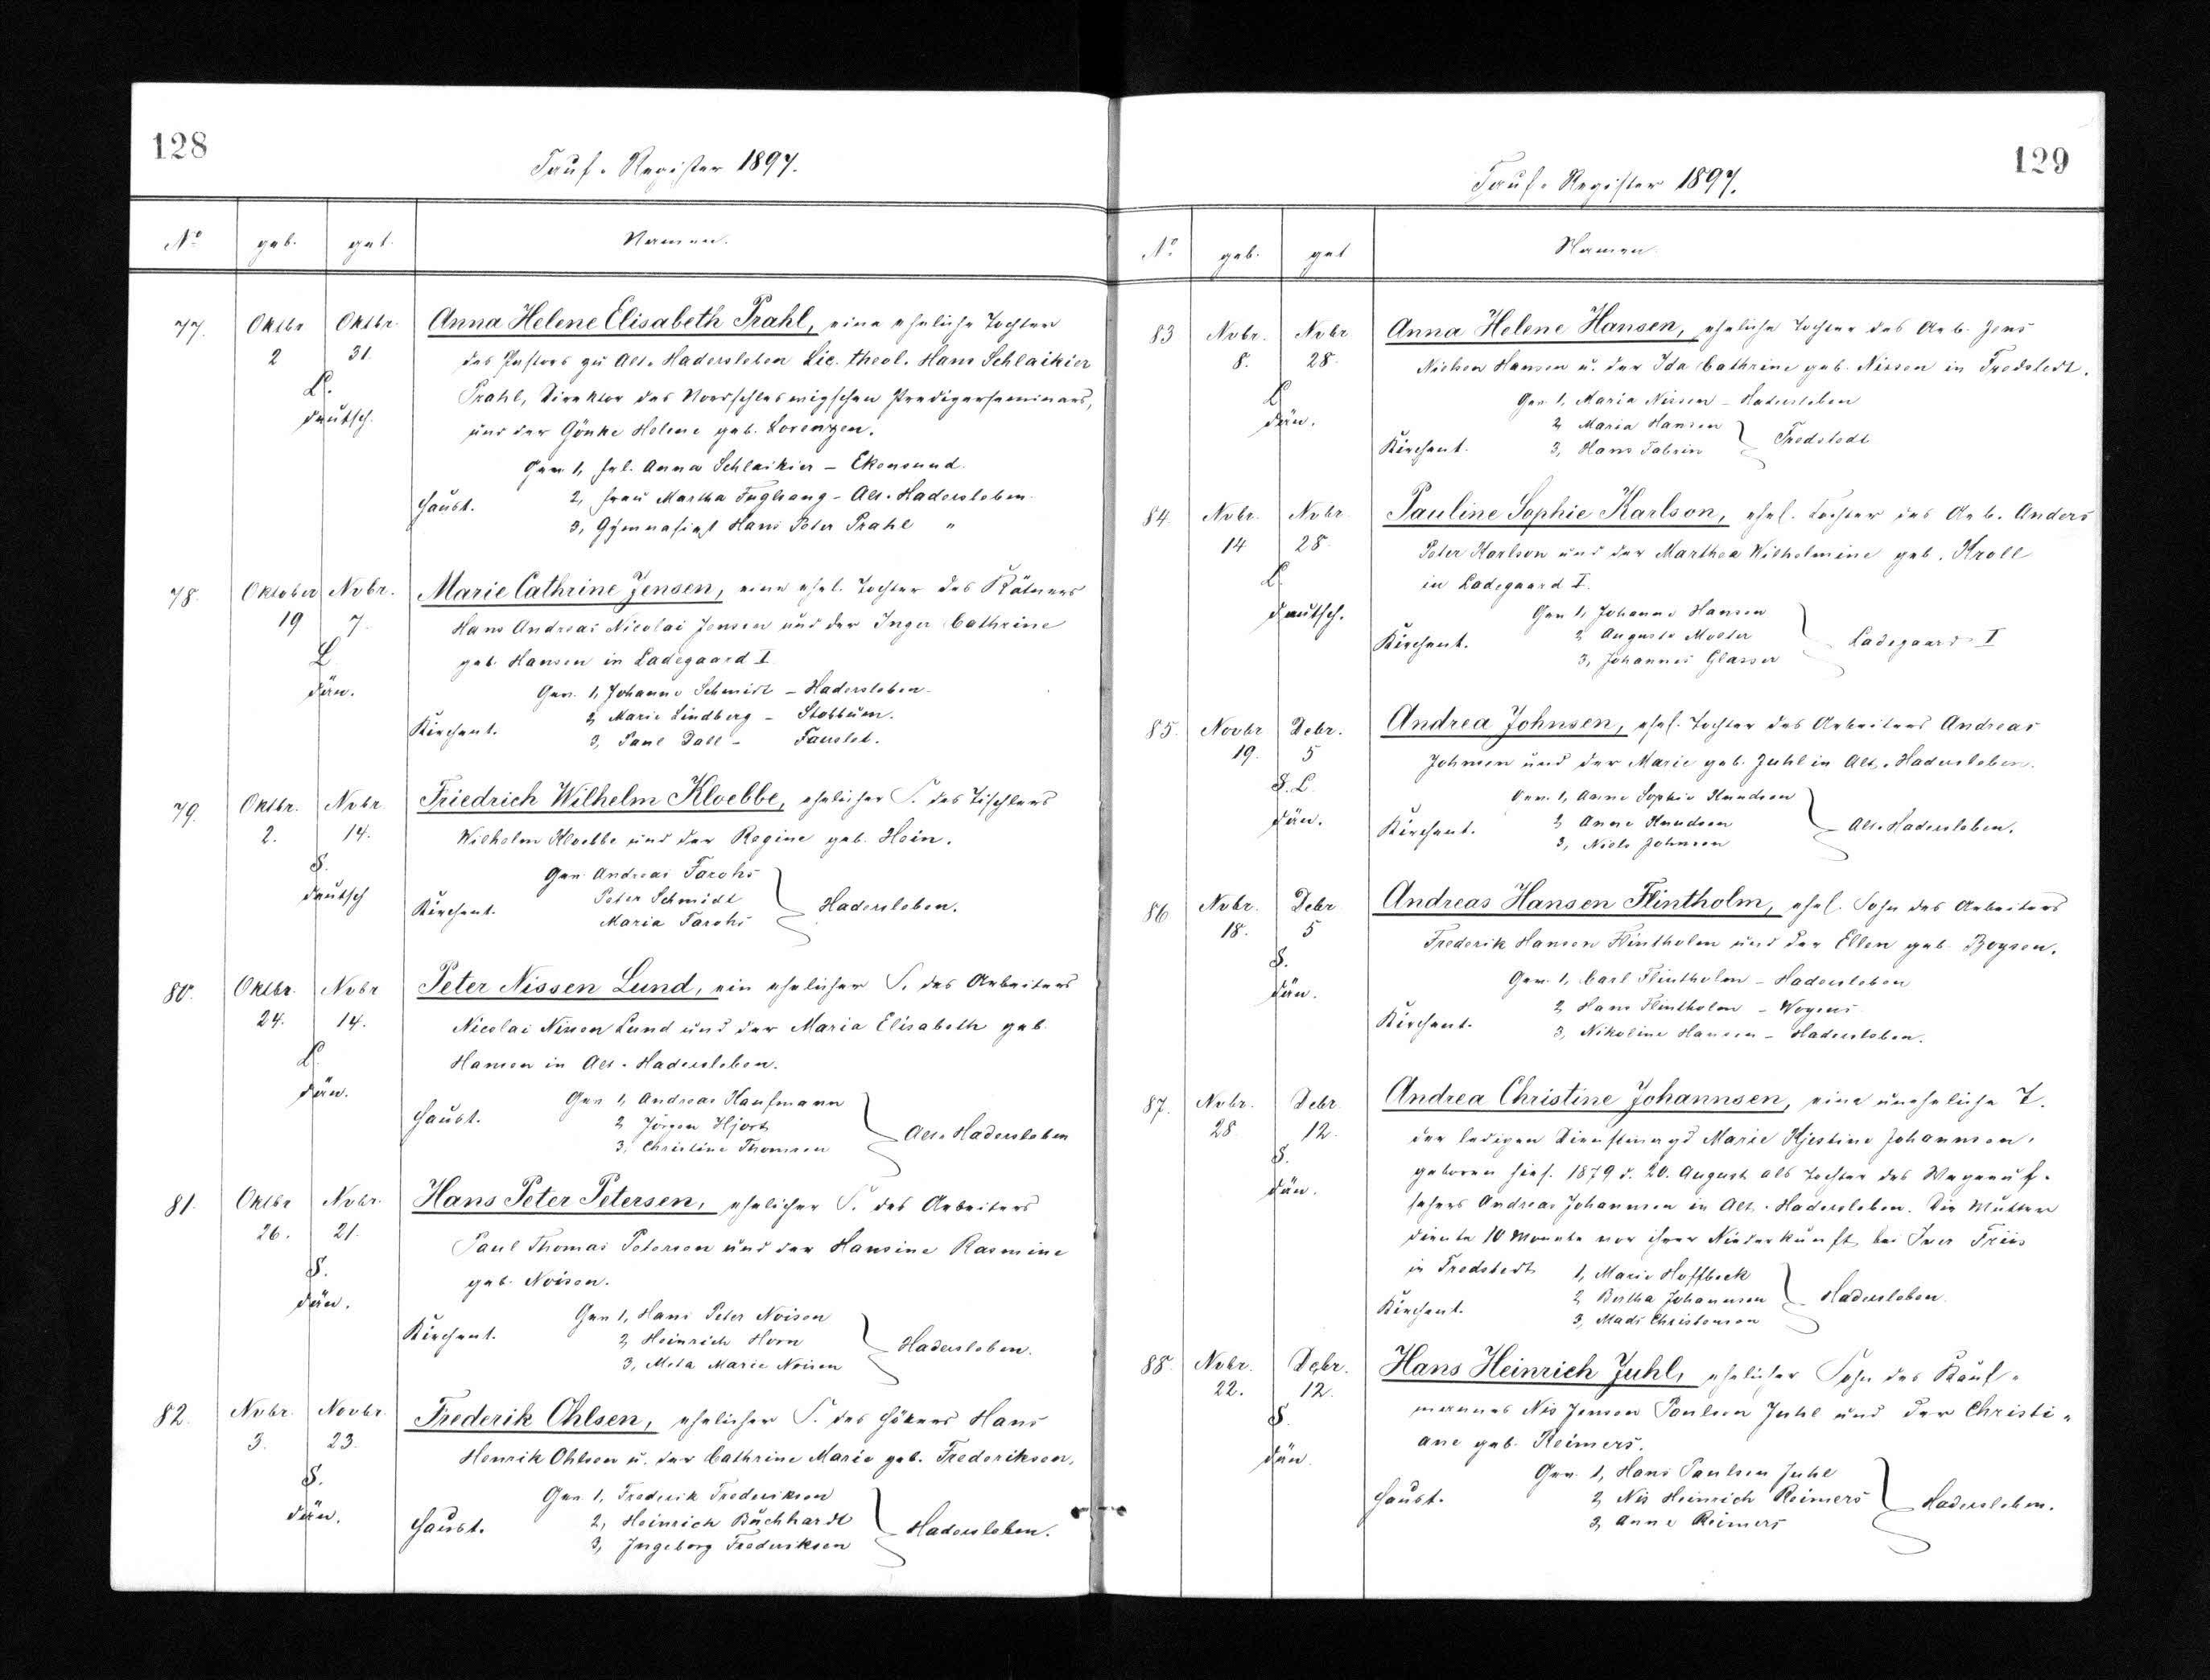 128
Tauf-Register 1897.
No geb. get. Namen.
77. Oktbr 2 Oktbr. 31 Anna Helene Elisabeth Prahl, eine eheliche Tochter
des Pastors zu Alt-Hadersleben Lic. theol. Hans Schlaikier
L.
Prahl, Direktor des Nordschleswigschen Predigerseminars,
deutsch.
und der Gönke Helene geb. Lorenzen.
Gev. 1, Frl. Anna Schlaikier - Ekensund.
2, Frau Martha Fuglsang - Alt-Hadersleben.
Haust.
3, Gymnasiast Hans Peter Prahl "
78. Oktober 19 Nvbr. 7. Marie Cathrine Jensen, eine ehel. Tochter des Kätners
Hans Andreas Nicolai Jensen und der Inger Cathrine
L.
geb. Hansen in Ladegaard I.
dän.
Gev. 1, Johanne Schmidt - Hadersleben.
2, Marie Lindberg - Stobbum.
Kirchent.
3, Paul Dall - Fauslet.
79. Oktbr. 2. Nvbr. 14. Friedrich Wilhelm Kloebbe, ehelicher S. des Tischlers
Wilhelm Kloebbe und der Regine geb. Hein.
S.
deutsch
Gev. Andreas Farohs
Peter Schmidt
Kirchent.
Maria Farohs
Hadersleben.
80. Oktbr. 24. Nvbr 14. Peter Nissen Lund, ein ehelicher S. des Arbeiters
Nicolai Nissen Lund und der Maria Elisabeth geb.
L.
Hansen in Alt-Hadersleben.
dän.
Gev. 1, Andreas Kaufmann
Haust.
2, Jörgen Hjort
3, Christine Thomsen
Alt-Hadersleben
81. Oktbr 26. Nvbr. 21. Hans Peter Petersen, ehelicher S. des Arbeiters
Paul Thomas Petersen und der Hansine Rasmine
S.
geb. Noisen.
dän.
Gev. 1, Hans Peter Noisen
Kirchent.
2, Heinrich Horn
3, Meta Marie Noisen
Hadersleben.
82. Nvbr. 3. Novbr. 23. Frederik Ohlsen, ehelicher S. des Hökers Hans
Henrik Ohlsen u. der Cathrine Marie geb. Frederiksen.
S.
dän.
Gev. 1, Frederik Frederiksen
2, Heinrich Buchhardt
Haust.
3, Ingeborg Frederiksen
Hadersleben.
129
Tauf-Register 1897.
No. geb. get Namen.
83 Nvbr. 8. Nvbr 28. Anna Helene Hansen, eheliche Tochter des Arb. Jens
Nielsen Hansen u. der Ida Cathrine geb. Nissen in Fredstedt.
L
dän.
Gev 1, Maria Nissen - Hadersleben
2, Maria Hansen
Kirchent.
3, Hans Fabrin
Fredstedt
84. Nvbr. 14 Nvbr. 28. Pauline Sophie Karlson, ehel. Tochter des Arb. Anders
Peter Karlson und der Marthea Wilhelmine geb. Kroll
L.
in Ladegaard I.
deutsch.
Gev 1, Johanne Hansen
2, Auguste Molter
Kirchent.
3, Johannes Glasser
Ladegaard I
85. Novbr 19. Debr. 5 Andrea Johnsen, ehel. Tochter des Arbeiters Andreas
Johnsen und der Marie geb. Juhl in Alt-Hadersleben.
S.L.
dän.
Gev. 1, Anne Sophie Knudsen
2, Anne Knudsen
Kirchent.
3, Niels Johnsen
Alt-Hadersleben.
86 Nvbr. 18. Debr 5 Andreas Hansen Flintholm, ehel. Sohn des Arbeiters
Frederik Hansen Flintholm und der Ellen geb. Boysen.
S.
dän.
Gev. 1, Carl Flintholm - Hadersleben
2, Hans Flintholm - Woyens
Kirchent.
3, Nikoline Hansen - Hadersleben.
87. Nvbr. 28 Debr 12. Andrea Christine Johannsen, eine uneheliche T.
der ledigen Dienstmagd Marie Kjestine Johannsen,
S.
geboren hies. 1879 d. 20. August als Tochter des Wegeauf-
dän.
sehers Andreas Johannsen in Alt-Hadersleben. Die Mutter
diente 10 Monate vor ihrer Niederkunft bei Iver Friis
in Fredstedt
1, Marie Hoffbeck
2, Bertha Johannsen
Kirchent.
3, Mads Christensen
Hadersleben.
88. Nvbr. 22. Debr. 12. Hans Heinrich Juhl, ehelicher Sohn des Kauf-
mannes Nis Jensen Paulsen Juhl und der Christi-
S.
ane geb. Reimers.
dän.
Gev. 1, Hans Paulsen Juhl
Haust.
2, Nis Heinrich Reimers
3, Anne Reimers
Hadersleben.